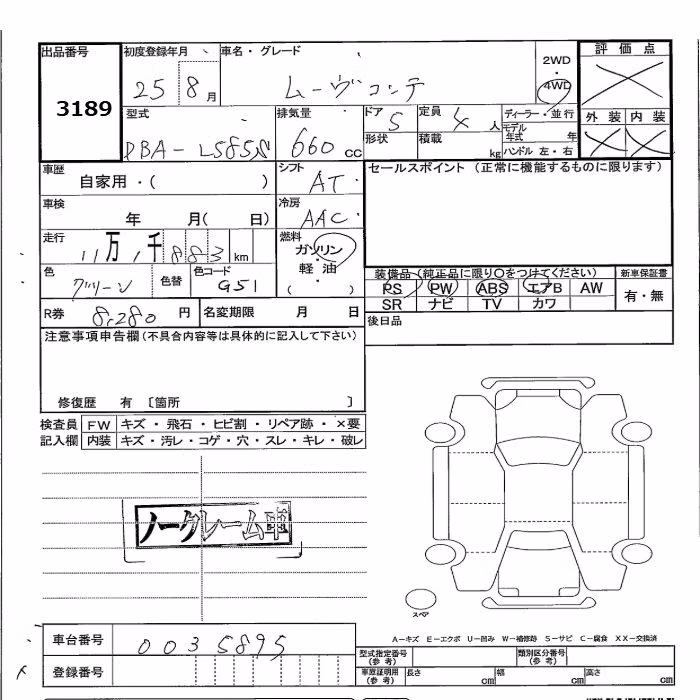 出品番号 初度登録年月 車名・グレード 2WD 評価点
3189 25 8月 ムーヴコンテ 4WD
外装 内装
型式 排気量 ドア 5 定員 4人 ディーラー・並行
DBA-L585S 660cc 形状 積載 kg モデル年式 年
ハンドル 左・右
車歴 自家用・( ) シフト AT セールスポイント (正常に機能するものに限ります)
車検 年 月( 日) 冷房 AAC
走行 11万1千883km 燃料 ガソリン・軽油・( )
色 グリーン 色替 色コード G51
装備品(純正品に限り〇をつけてください) 新車保証書
PS PW ABS エアB AW 有・無
SR ナビ TV カワ
R券 8,280円 名変期限 月 日 後日品
注意事項申告欄(不具合内容等は具体的に記入して下さい)
修復歴 有 〔箇所 〕
検査員 FW キズ・飛石・ヒビ割・リペア跡・×要
記入欄 内装 キズ・汚レ・コゲ・穴・スレ・キレ・破レ
ノークレーム車
スペア
A−キズ E−エクボ U−凹み W−補修跡 S−サビ C−腐食 XX−交換済
車台番号 0035895
型式指定番号(参考) 類別区分番号(参考)
登録番号 車庫証明用(参考) 長さ cm 幅 cm 高さ cm